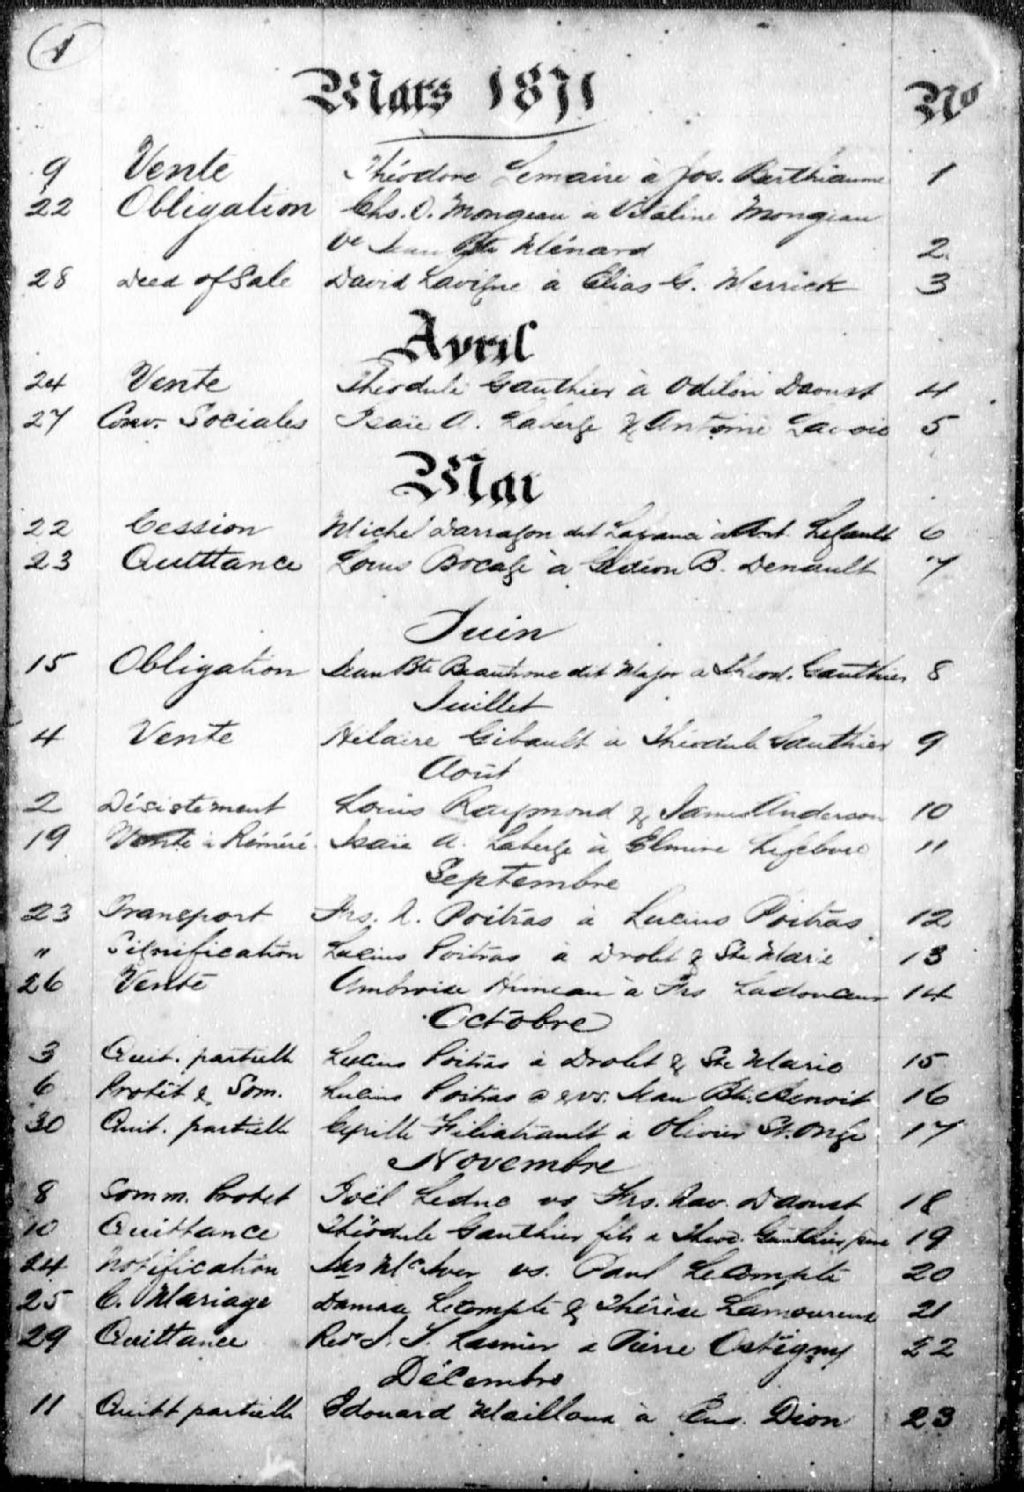 1
Mars 1871 No
9 Vente Théodore Lemaire à Jos. Berthiaume 1
22 Obligation Chs. O. Mongeau à Vitaline Mongeau
Ve Jean Bte Ménard 2
28 Deed of Sale David Lavigne à Elias G. Merrick 3
Avril
24 Vente Théodule Gauthier à Odilon Daoust 4
27 Conv. Sociales Isaïe A. Laberge & Antoine Lavoie 5
Mai
22 Cession Michel Darragon dit Lafrance à Ant. Legault 6
23 Quittance Louis Bocage à Gédéon B. Denault 7
Juin
15 Obligation Jean Bte dit Major à Théod. Gauthier 8
Juillet
4 Vente Hilaire Gibault à Théodule Gauthier 9
Août
2 Désistement Louis Raymond & James Anderson 10
19 Vente à Réméré Isaïe A. Laberge à Elmire Lefebvre 11
Septembre
23 Transport Frs. X. Poitras à Lucius Poitras 12
" Signification Lucius Poitras à Drolet & Ste Marie 13
26 Vente Ambroise à Frs Ladouceur 14
Octobre
3 Quit. partielle Lucius Poitras à Drolet & Ste Marie 15
6 Protêt & Som. Lucius Poitras vs. Jean Bte. Benoit 16
30 Quit. partielle Cyrille Filiatrault à Olivier St. Onge 17
Novembre
8 Somm. Protêt Joël Leduc vs Frs. Xav. Daoust 18
10 Quittance Théodule Gauthier fils à Théod. Gauthier père 19
24 Notification Jas McIver vs. Paul Lecompte 20
25 C. Mariage Damase Lecompte & Thérèse Lamoureux 21
29 Quittance Rev à Pierre Ostigny 22
Décembre
11 Quitt partielle Edouard Mailloux à Eus. Dion 23